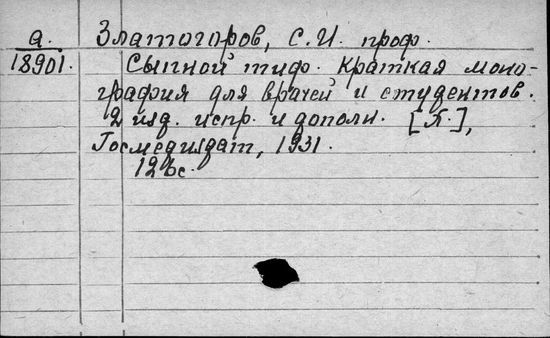 а. Златогоров, С.И. проф.
18901. Сыпной тиф. Краткая моно-
графия для врачей и студентов.
2 изд. испр. и дополн. [Л.],
Госмедиздат, 1931.
с.